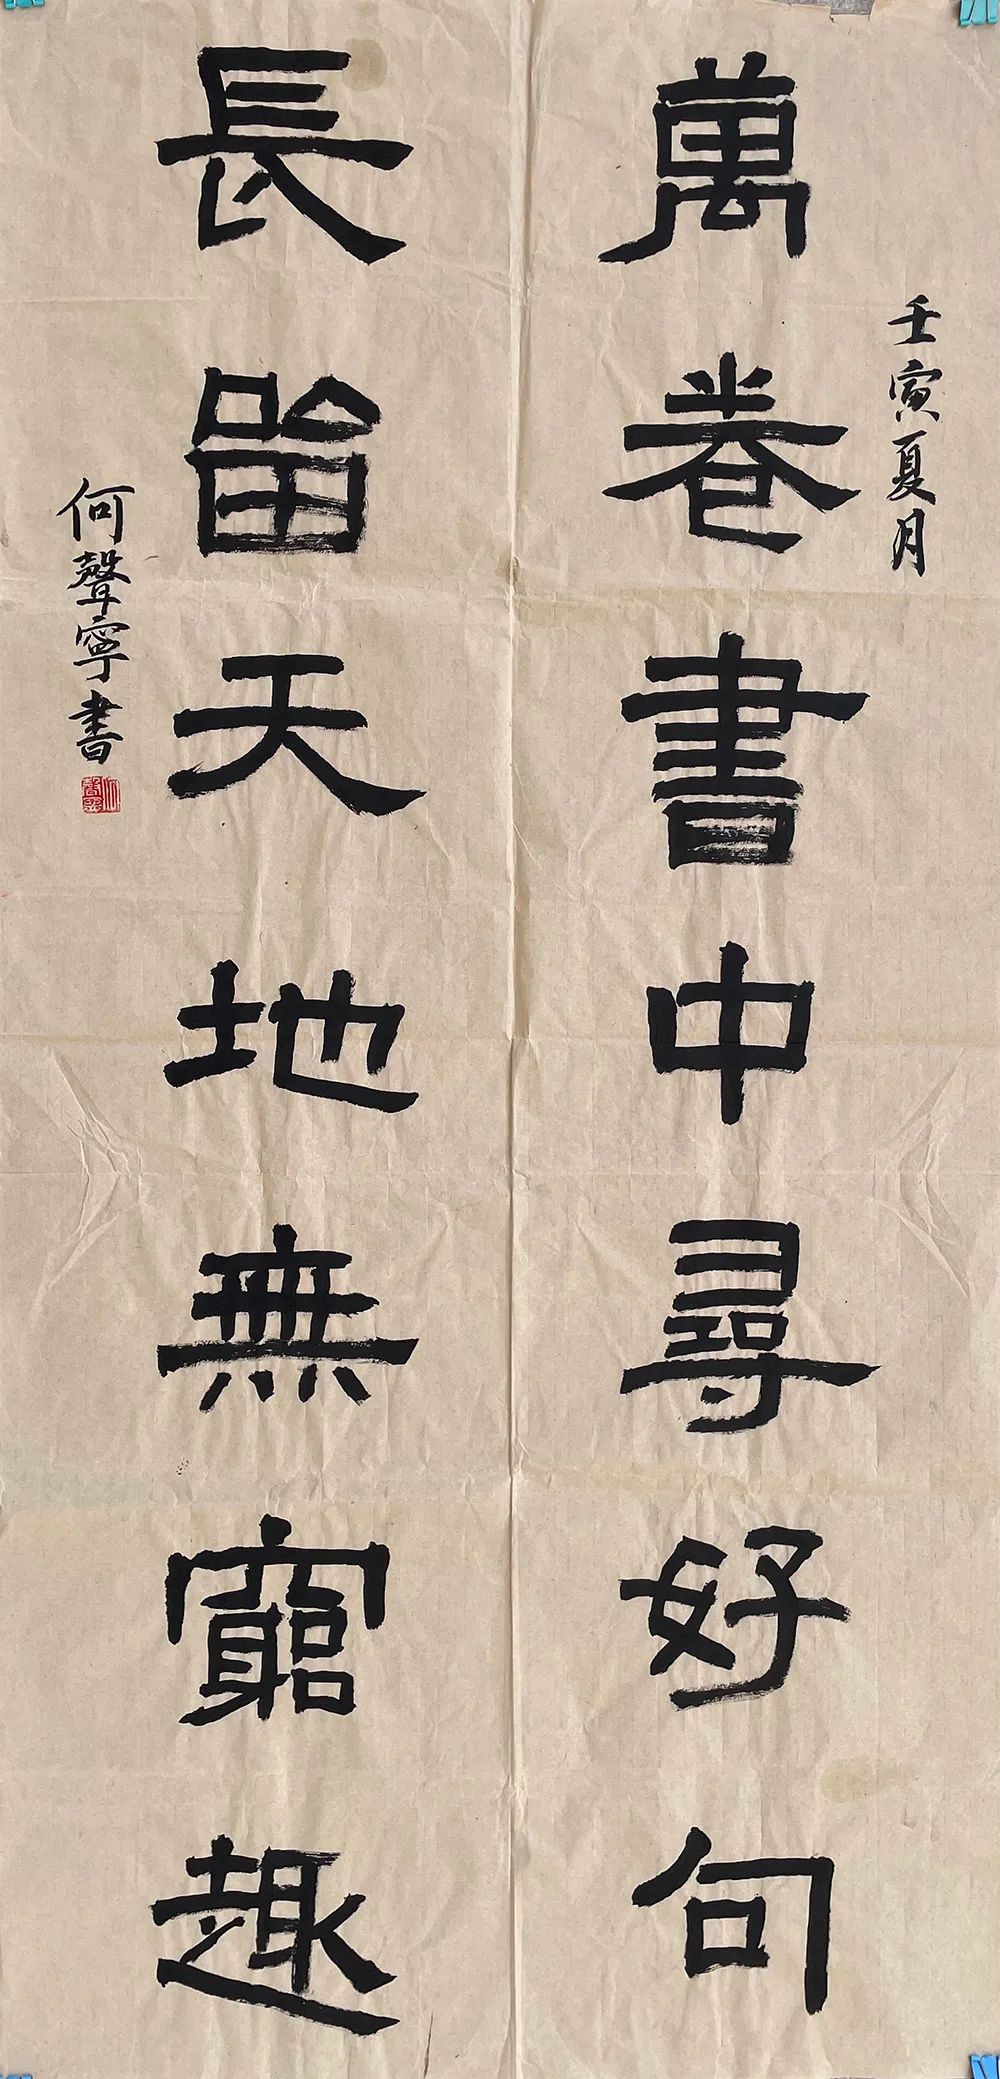 壬寅夏月
萬卷書中尋好句
長留天地無窮趣
何聲寧書